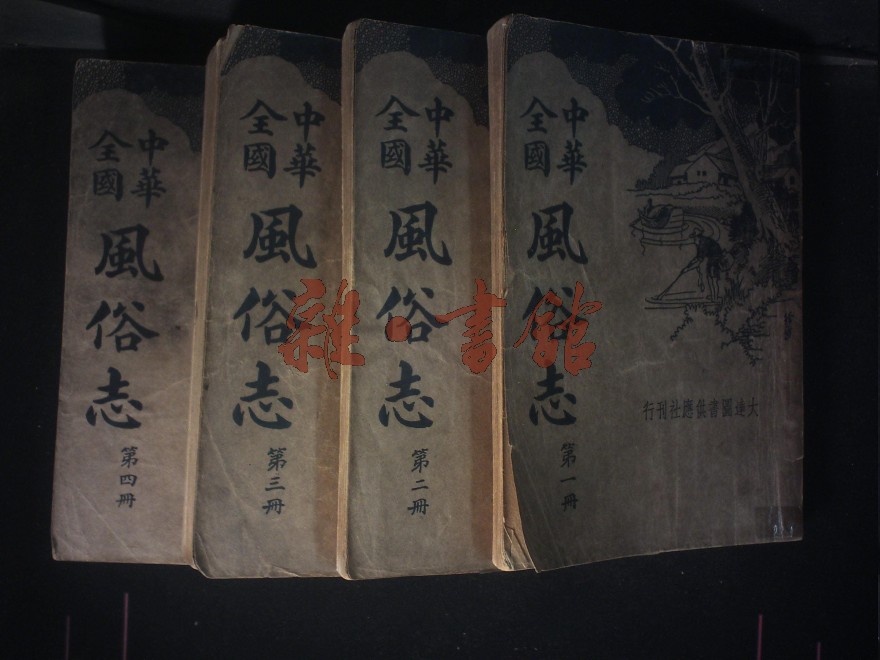 大達圖書供應社刊行
中華
全國
風俗志
第一冊
中華
全國
風俗志
第二冊
中華
全國
風俗志
第三冊
中華
全國
風俗志
第四冊
雜·書館